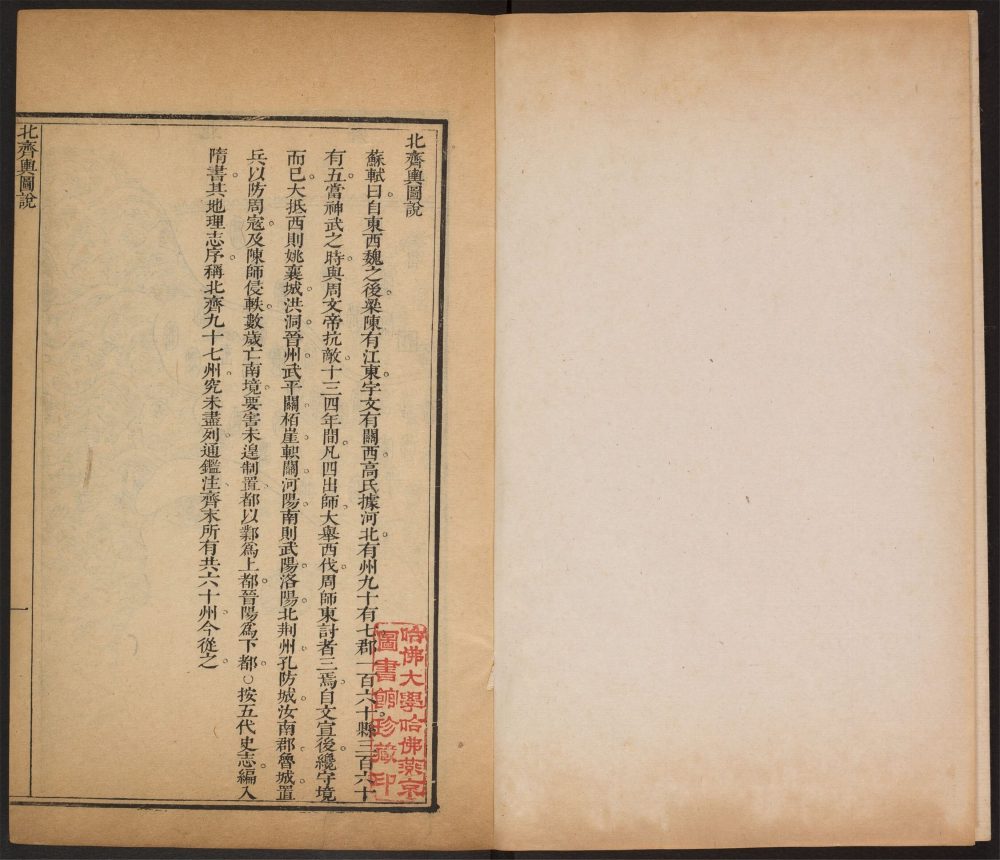 北齊輿圖說
蘇軾曰自東西魏之後梁陳有江東宇文有關西高氏據河北有州九十有七郡一百六十縣三百六十
有五當神武之時與周文帝抗敵十三四年間凡四出師大舉西伐周師東討者三焉自文宣後纔守境
而已大抵西則姚襄城洪洞晉州武平關栢崖軹關河陽南則武陽洛陽北荆州孔防城汝南郡魯城置
兵以防周寇及陳師侵軼數歲亡南境要害未遑制置都以鄴爲上都晉陽爲下都○按五代史志編入
隋書其地理志序稱北齊九十七州究未盡列通鑑注齊末所有共六十州今從之
哈佛大學哈佛燕京
圖書館珍藏印
北齊輿圖說
一